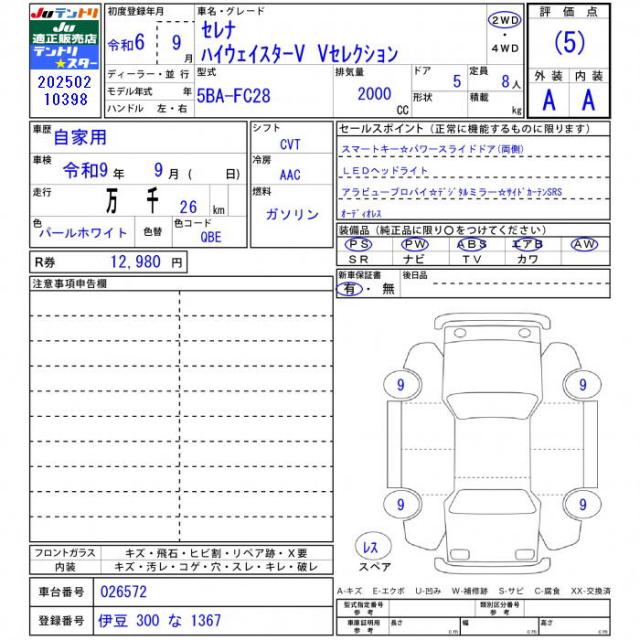 Juテントリ
Ju
適正販売店
テントリ
★スター
202502
10398
初度登録年月
令和6 年 9 月
ディーラー・並 行
モデル年式 年
ハンドル 左・右
車名・グレード
セレナ
ハイウェイスターV Vセレクション
2WD
・
4WD
型式
5BA-FC28
排気量
2000
CC
ドア
5
形状
定員
8人
積載
kg
評 価 点
(5)
外 装 内 装
A A
車歴
自家用
車検
令和9 年 9 月 ( 日)
走行
万 千 26 km
色
パールホワイト
色替
色コード
QBE
シフト
CVT
冷房
AAC
燃料
ガソリン
R券 12,980 円
セールスポイント (正常に機能するものに限ります)
スマートキー☆パワースライドドア(両側)
LEDヘッドライト
アラビュープロパイ☆デジタルミラー☆サイドカーテンSRS
オーディオレス
装備品 (純正品に限り〇をつけてください)
PS PW ABS エアB AW
SR ナビ TV カワ
新車保証書
有・無
後日品
注意事項申告欄
9 9
9 9
レス
スペア
フロントガラス キズ・飛石・ヒビ割・リペア跡・X要
内装 キズ・汚レ・コゲ・穴・スレ・キレ・破レ
車台番号 026572
登録番号 伊豆 300 な 1367
A-キズ E-エクボ U-凹み W-補修跡 S-サビ C-腐食 XX-交換済
型式指定番号
参考
類別区分番号
参考
車庫証明用
参考
長さ cm 幅 cm 高さ cm